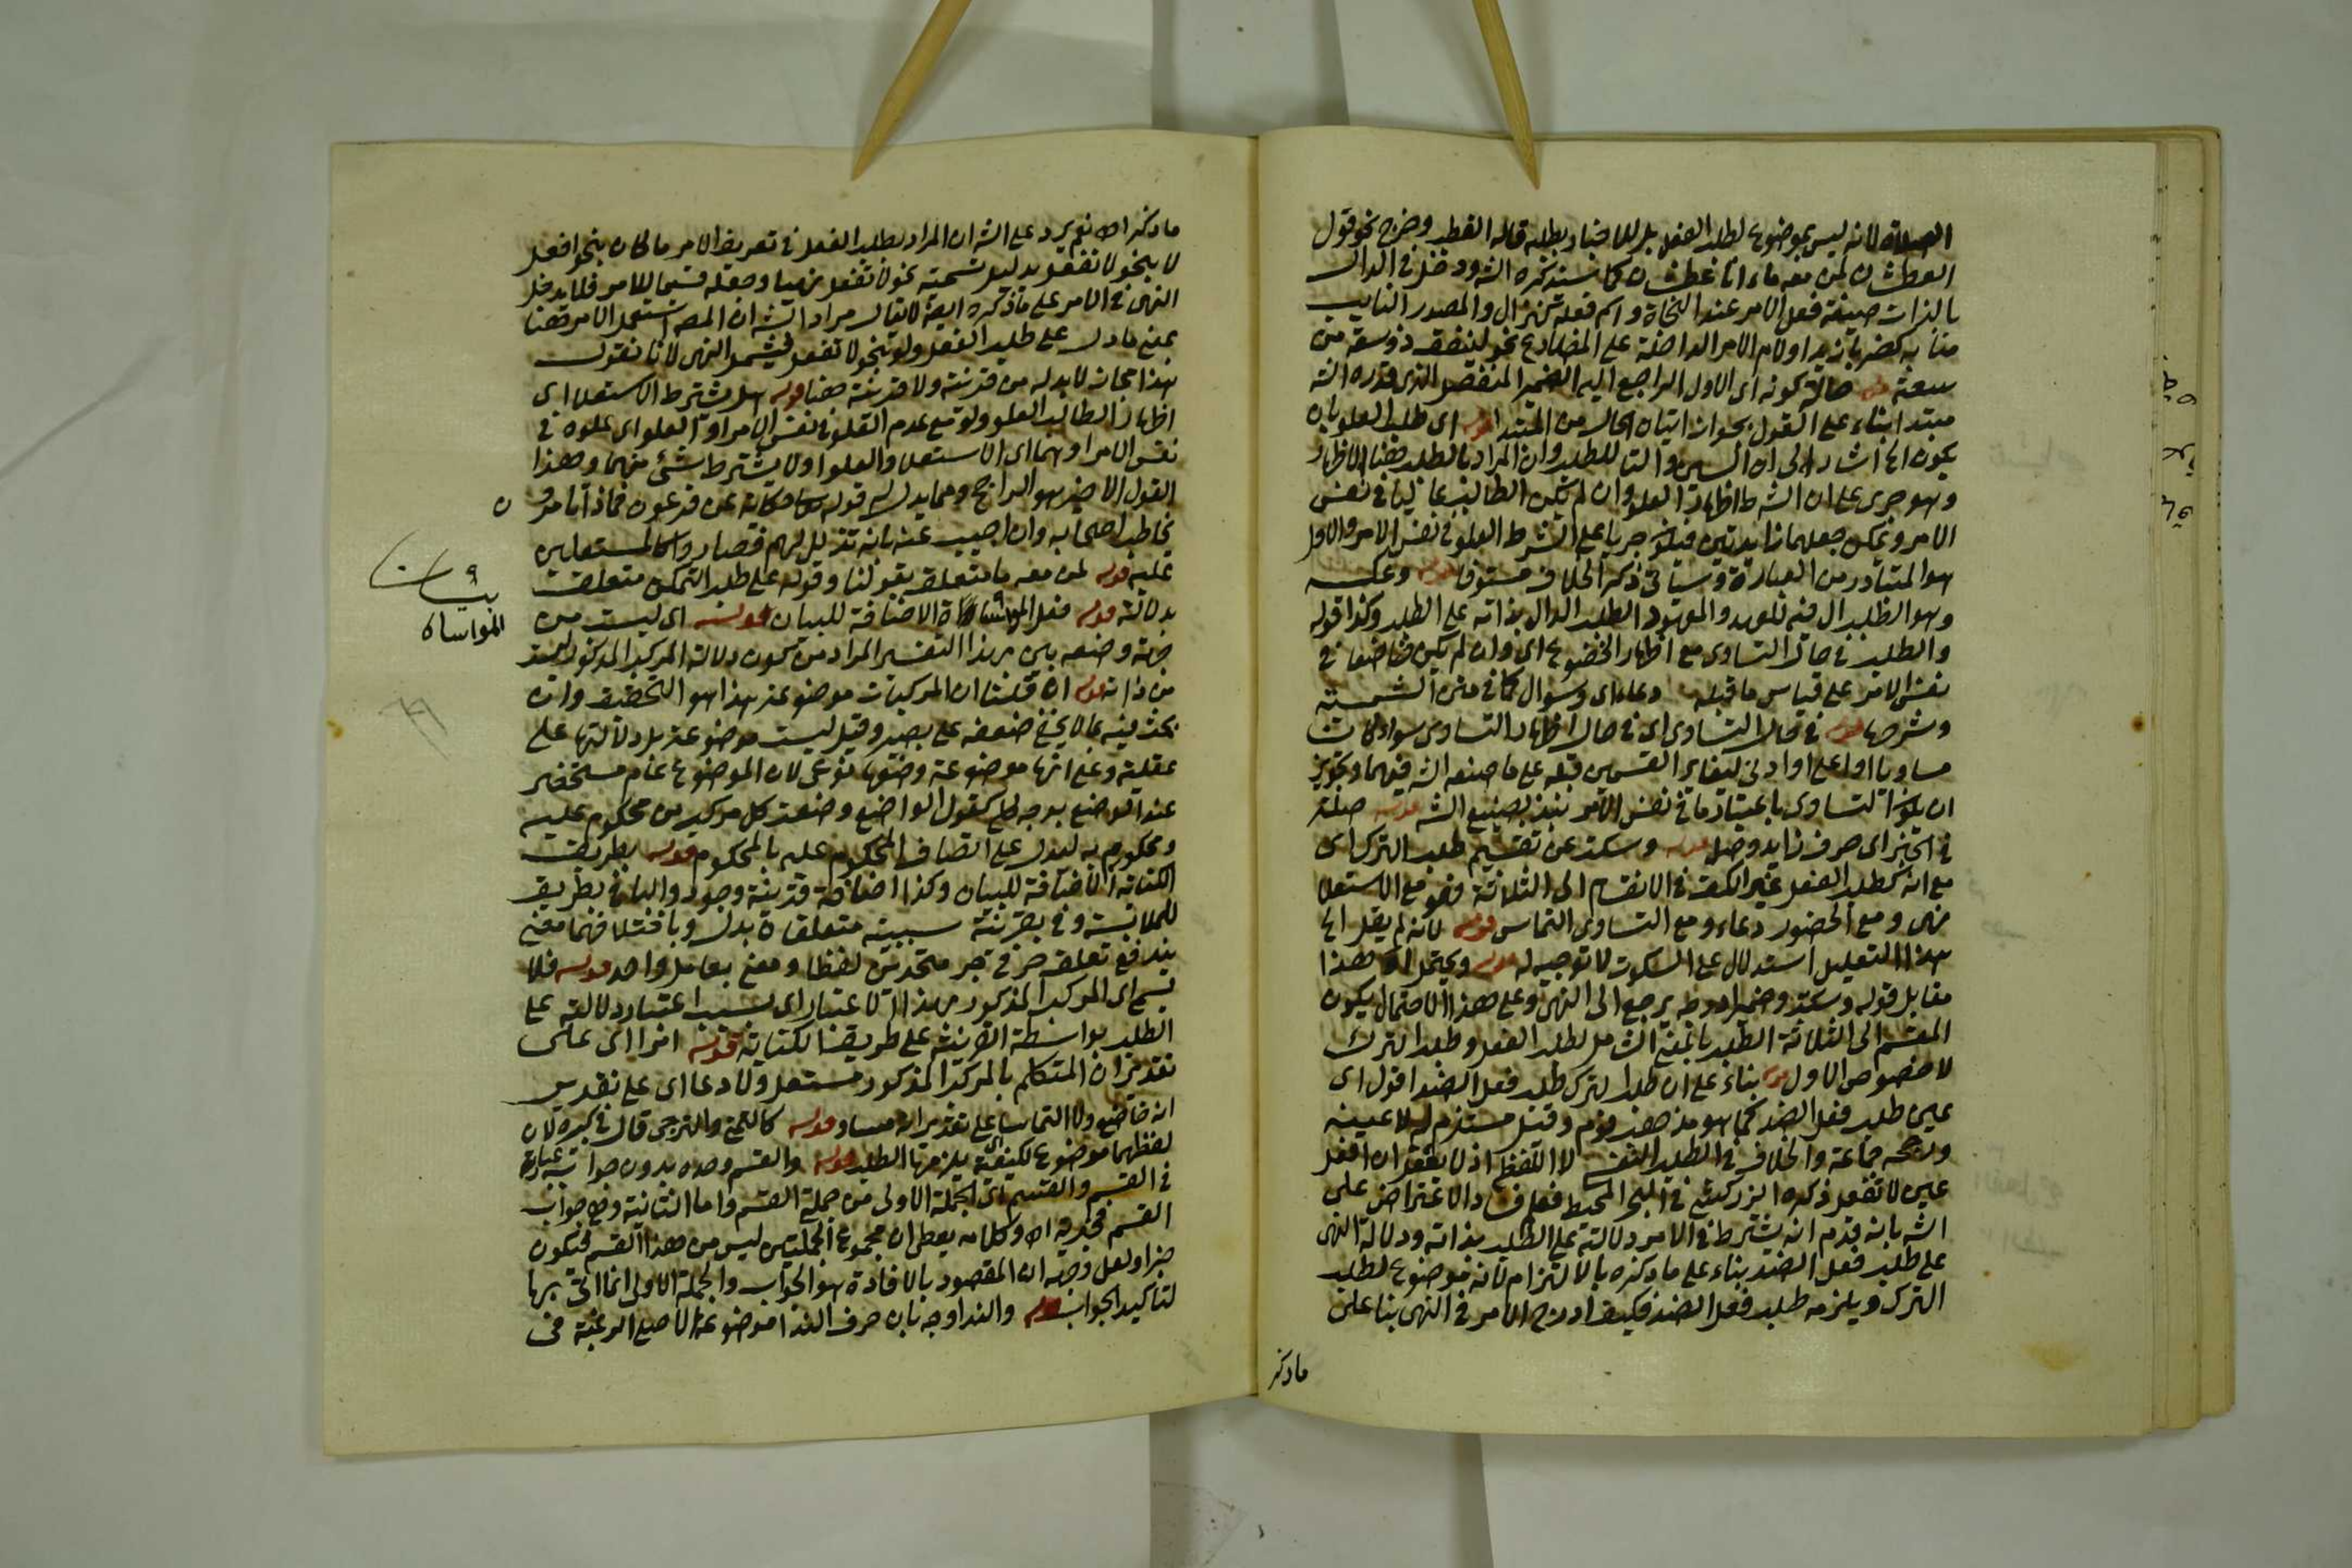 الصلاة لانه ليس بموضوع لطلب الفعل بل للاخبار بطلبه قاله القطب وخرج نحو قول
العطشان لمن معه ماء انا عطشان كما سنذكره الشه ودخل في الدال
بالذات صيغة فعل الامر عند النحاة واسم فعله كنزال والمصدر النايب
منابه كضربا زيدا ولام الامر الداخلة على المضارع نحو لينفق ذو سعة من
سعته قوله حالة كونه اى الاول الراجع اليه الضمير المنفصل الذى قدره الشه
مبتدا بناء على القول بجواز اتيان الحال من المبتدا قوله اى طلب العلو بان
يكون الخ اشار الى ان السين والتا للطلب وان المراد بالطلب هنا الاظهار
وهو جرى على ان الشرط اظهار العلو وان لم يكن الطالب عاليا في نفس
الامر ويمكن جعلهما زايدتين فيكون جريا على الشرط العلو في نفس الامر والاول
هو المتبادر من العبارة وسياتى ذكر الخلاف مستوفا قوله وعكسه
وهو الطلب ال فيه للعهد والمعهود الطلب الدال بذاته على الطلب وكذا قوله
والطلب في حال التساوى مع اظهار الخضوع اى وان لم يكن خاضعا في
نفس الامر على قياس ما قبله دعاء اى وسوال كما في متن الشمسية
وشرحها قوله في حال التساوى اى في حال اظهار التساوى سواء كان
مساويا او اعلى او ادنى ليغاير القسمين قبله على ما صنعه الشه فيهما وتجويز
ان يكون التساوى باعتبار ما في نفس الامر ينبذ بصنيع الشه قوله صلة
في الخبر اى حرف زايد وصل قوله وسكت عن تقسيم طلب الترك اى
مع انه كطلب الفعل غير الكف في الانقسام الى الثلاثة فهو مع الاستعلا
نهى ومع الخضوع دعاء ومع التساوى التماس قوله لانه لم يقل الخ
هذا التعليل استدلال على السكوت لا توجيه له قوله ويحتمل ان هذا
مقابل قوله وسكت وضمير ادرجه يرجع الى النهى وعلى هذا الاحتمال يكون
المقسم الى الثلاثة الطلب بالمعنى الشامل لطلب الفعل وطلب الترك
لا خصوص الاول قوله بناء على ان طلب الترك طلب فعل الضد اقول اى
عين طلب فعل الضد كما هو مذهب قوم وقيل مستلزم له لا عينه
ورجحه جماعة والخلاف في الطلب النفسى لا اللفظى اذ لا يعقل ان افعل
عين لا تفعل ذكره الزركشى في البحر المحيط فعلم فساد الاعتراض على
الشه بانه قدم انه يشترط في الامر دلالته على الطلب بذاته ودلالة النهى
على طلب فعل الضد بناء على ما ذكره بالالتزام لانه موضوع لطلب
الترك ويلزمه طلب فعل الضد فكيف ادرج الامر في النهى بنا على
ما ذكر
ما ذكر اه نعم يرد على الشه ان المراد بطلب الفعل في تعريف الامر ما كان بنحو افعل
لا بنحو لا تفعل بدليل تسميته نحو لا تفعل نهيا وجعله قسيما للامر فلا يدخل
النهى في الامر على ما ذكره ايضا لا يقال مراد الشه ان المصه استعمل الامر هنا
بمعنى ما دل على طلب الفعل ولو بنحو لا تفعل فيشمل النهى لانا نقول
هذا مجاز لا بد له من قرينة ولا قرينة هنا قوله هل يشترط الاستعلا اى
اظهار الطالب العلو ولو مع عدم العلو في نفس الامر او العلو اى علوه في
نفس الامر او هما اى الاستعلا والعلو او لا يشترط شئ منهما وهذا
القول الاخير هو الراجح ومما يدل له قوله تعا حكاية عن فرعون فماذا تامرو ن
يخاطب اصحابه وان اجيب عنه بانه تذلل لهم فصار وا كالمستعلين
عليه قوله لمن معه ما متعلق بقولنا وقوله على طلب التمكن متعلق
بدلالة قوله فعل المواساة الاضافة للبيان قوله اى ليست من
بيان
المواساة
جهة وضعه بين بهذا التفسير المراد من كون دلالة المركب المذكور ليست
من ذاته قوله ان قلنا ان المركبات موضوعة هذا هو التحقيق وان
بحث فيه بما لا يخفى ضعفه على بصير وقيل ليست موضوعة بل دلالتها على
عقلية وعلى انها موضوعة وضعها نوعى لان الموضوع عام مستحضر
عند الوضع بوجه كلى كقول الواضع وضعت كل مركب من محكوم عليه
ومحكوم به ليدل على اتصاف المحكوم عليه بالمحكوم قوله بطريق
الكناية الاضافة للبيان وكذا اضافة قرينة وجود والبا في بطريق
للملابسة وفي بقرينة سببية متعلقة بدل وباختلافهما معنى
يندفع تعلق حرفى جر متحدين لفظا ومعنى بعامل واحد قوله فلا
يسمى اى المركب المذكور بهذا الاعتبار اى بسبب اعتبار دلالته على
الطلب بواسطة القرينة على طريق الكناية قوله امرا اى على
تقدير ان المتكلم بالمركب المذكور مستعل ولا دعا اى على تقدير
انه خاضع ولا التماسا على تقدير انه مساو قوله كالتمنى والترجى قال في كبيره لان
لفظهما موضوع لكيفية يلزمها الطلب قوله والقسم وحده بدون جوابه عبارة
في القسم والقسم اى الجملة الاولى من جملة القسم واما الثانية وهى جواب
القسم فخبرية اه وكلامه يعطى ان مجموع الجملتين ليس من هذا القسم فيكون
خبرا ولعل وجهه ان المقصود بالافادة هو الجواب والجملة الاولى انما اتى بها
لتاكيد الجواب قوله والندا وجه بان حرف الندا موضوعة لاصل الرغبة في